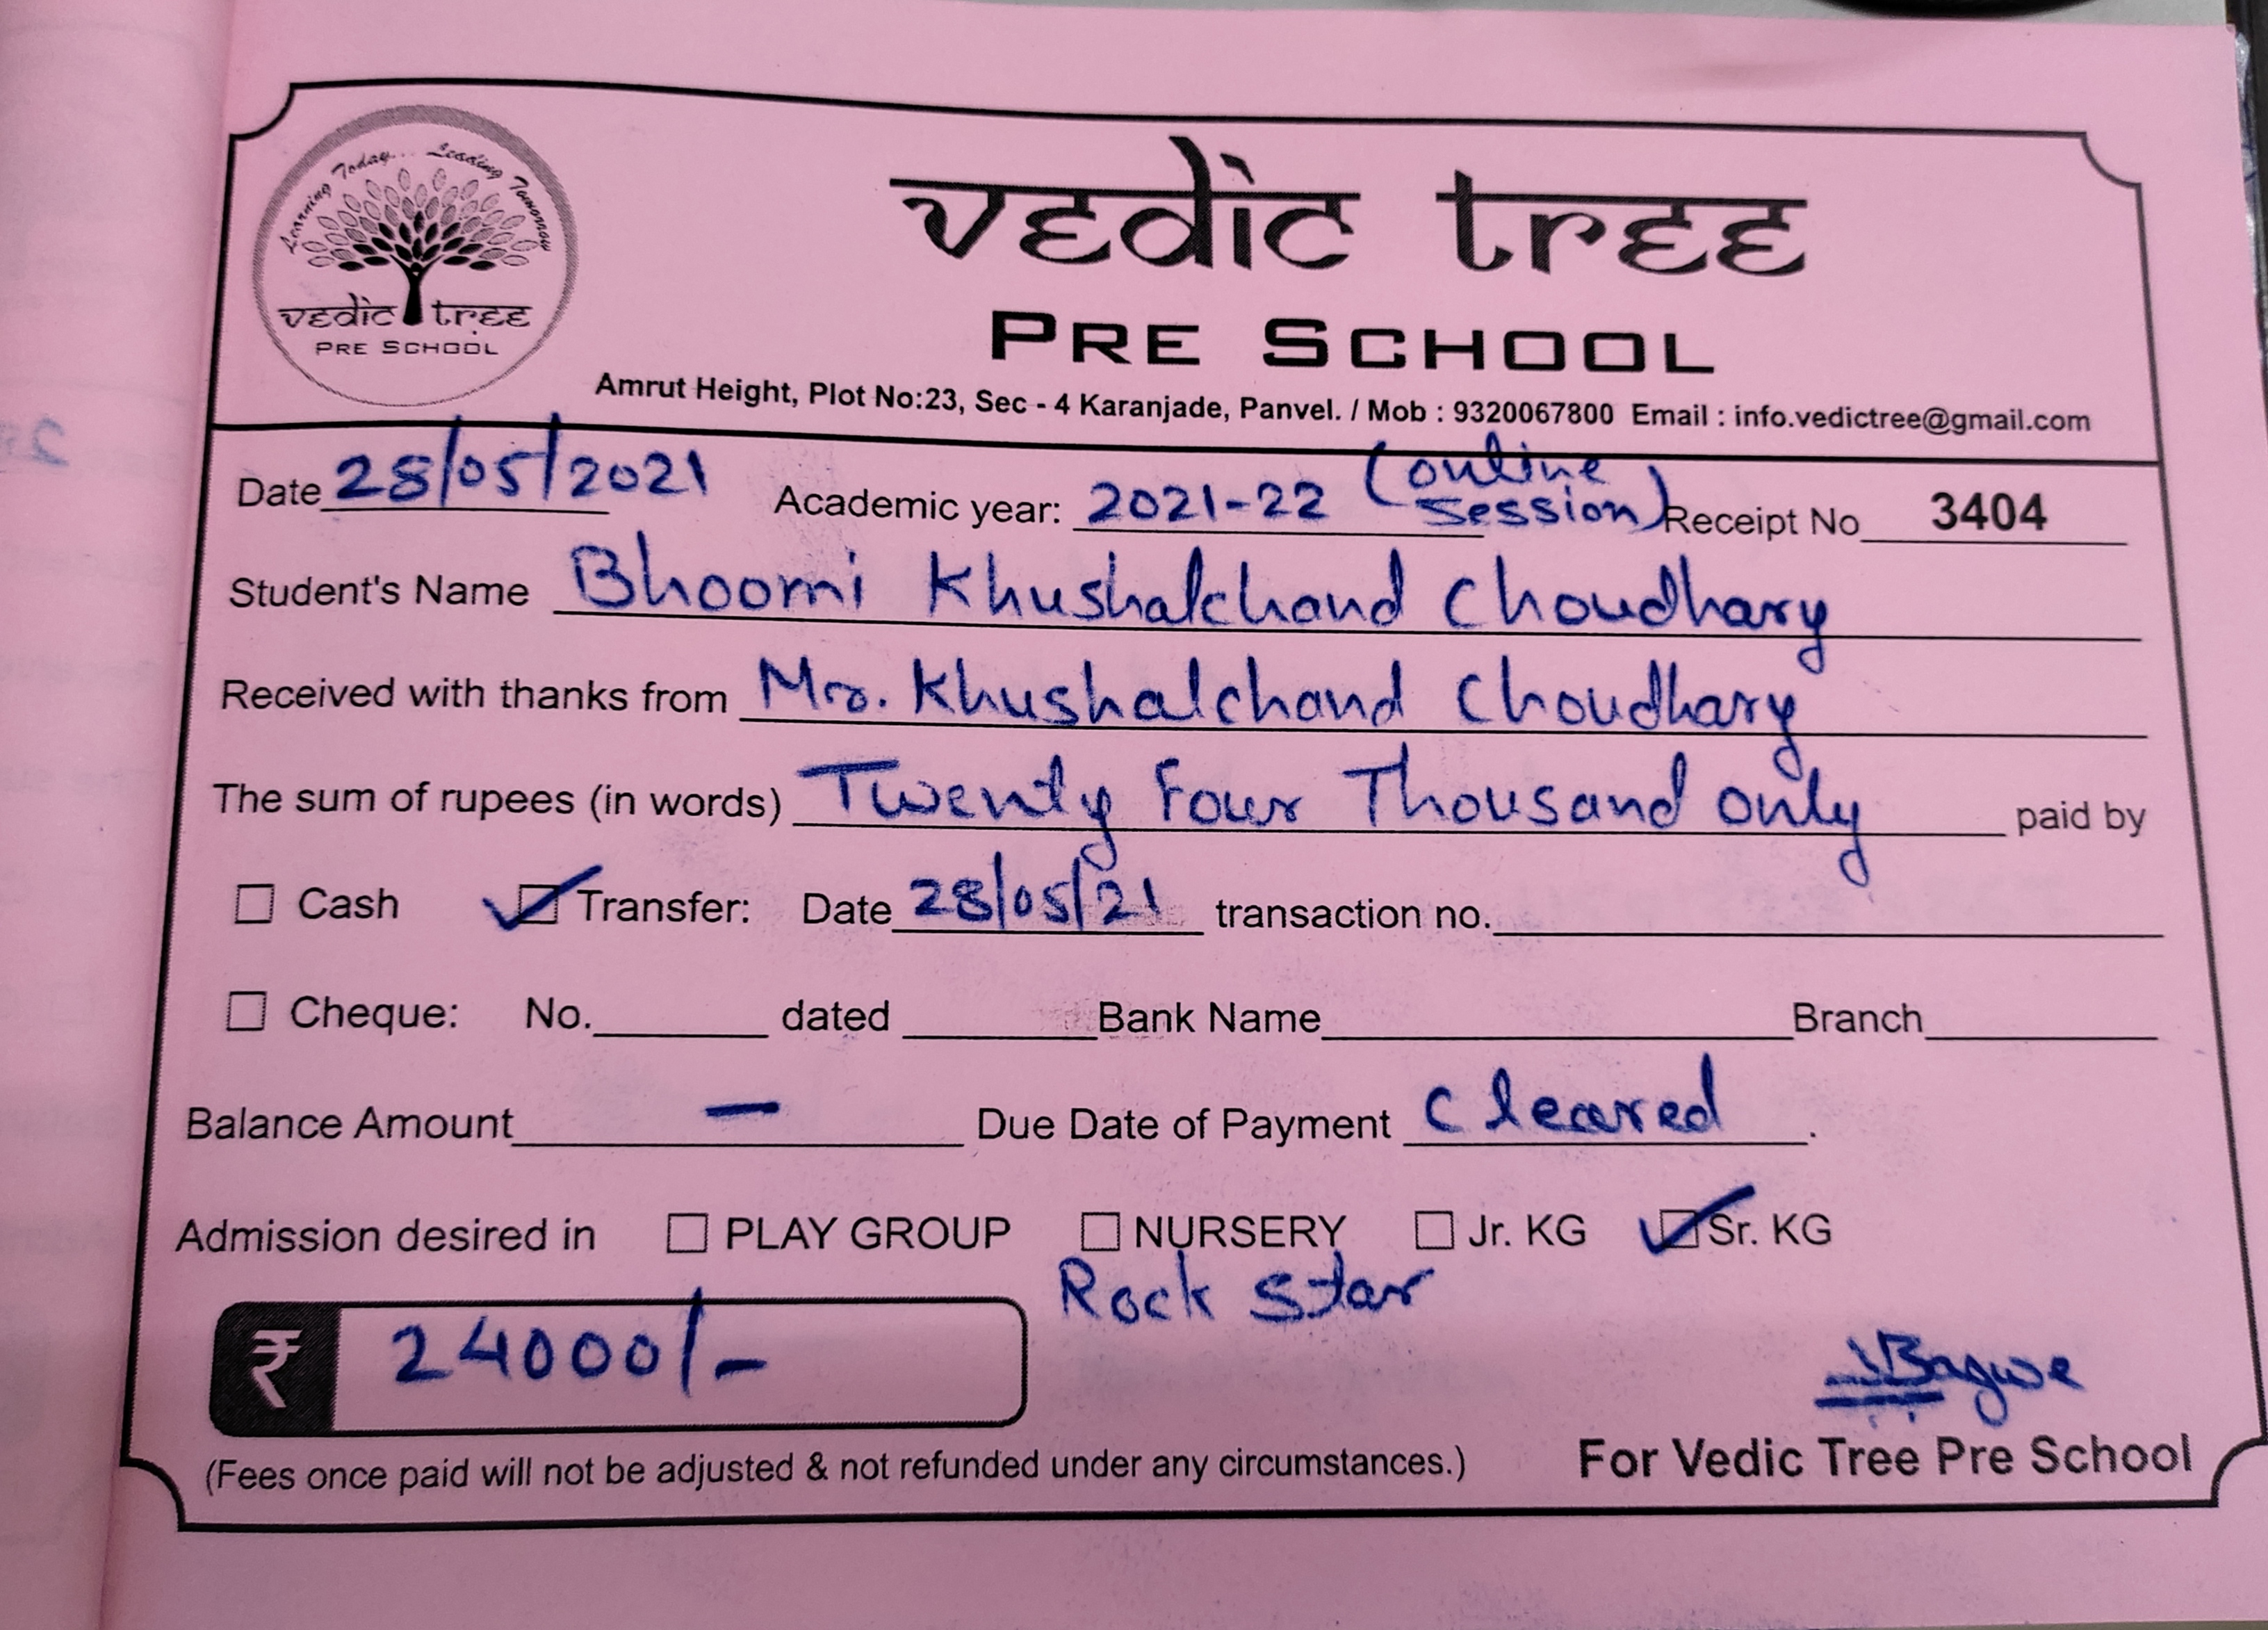 Learning Today... Leading Tomorrow
vedic tree
PRE SCHOOL
vedic tree
PRE SCHOOL
Amrut Height, Plot No:23, Sec - 4 Karanjade, Panvel. / Mob : 9320067800 Email : info.vedictree@gmail.com
Date 28/05/2021 Academic year: 2021-22 (online session) Receipt No 3404
Student's Name Bhoomi Khushalchand Choudhary
Received with thanks from Mr. Khushalchand Choudhary
The sum of rupees (in words) Twenty Four Thousand only paid by
Cash Transfer: Date 28/05/21 transaction no.
Cheque: No. dated Bank Name Branch
Balance Amount — Due Date of Payment Cleared.
Admission desired in PLAY GROUP NURSERY Jr. KG Sr. KG
Rock Star
₹ 24000/-
Bagwe
(Fees once paid will not be adjusted & not refunded under any circumstances.) For Vedic Tree Pre School